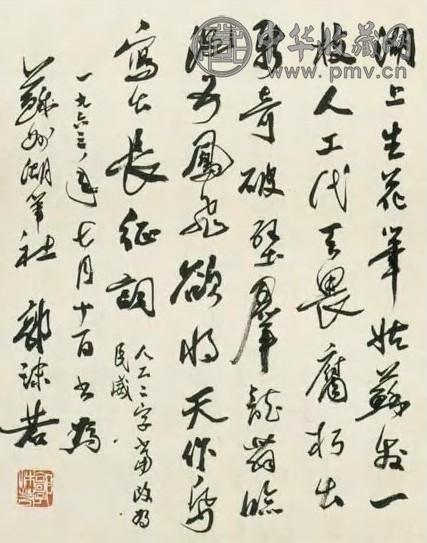 中华收藏网
www.pmv.cn
湖上生花筆姑蘇發一
枝人工代天畏腐朽出
奇破壁羣龍舞臨
鳳飛欲將天作紙
寫出長征詞
人工二字當改為
民威
一九六三年七月十日書為
蘇州湖筆社 郭沫若